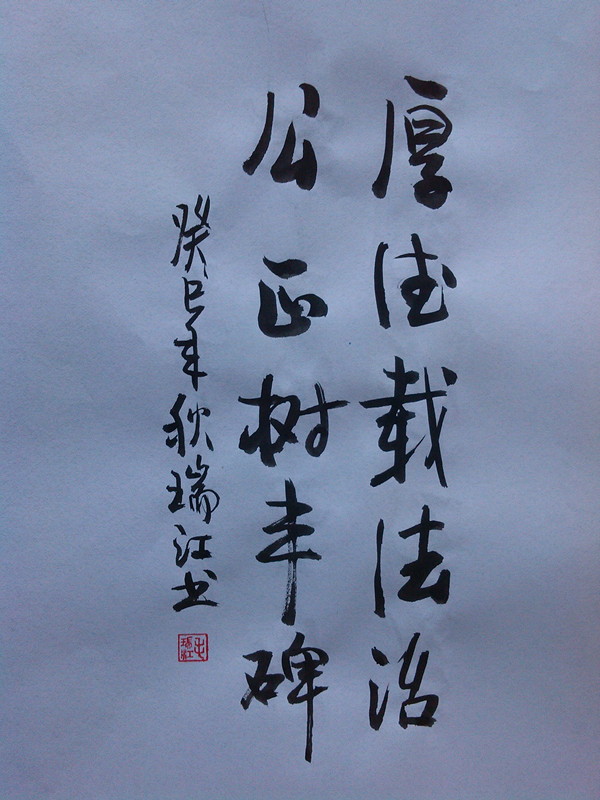 厚德载法治
公正树丰碑
癸巳年秋瑞江书